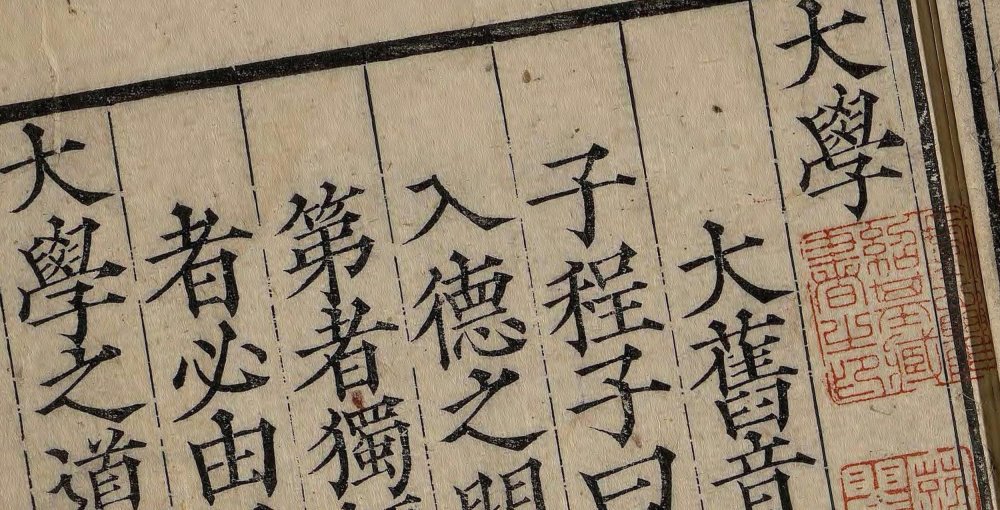 大學
大舊音
子程子曰
入德之門
第者獨
者必由
大學之道